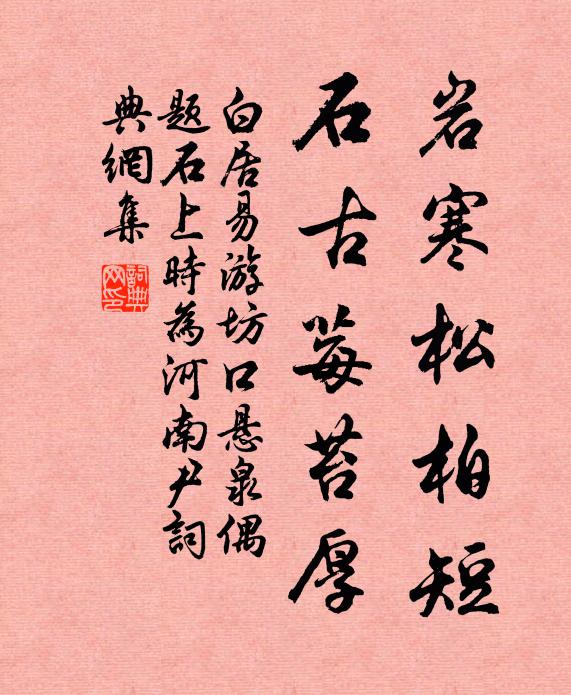 岩寒松柏短
石古莓苔厚
白居易游坊口悬泉偶
题石上時為河南尹詞
典網集
詞典网印